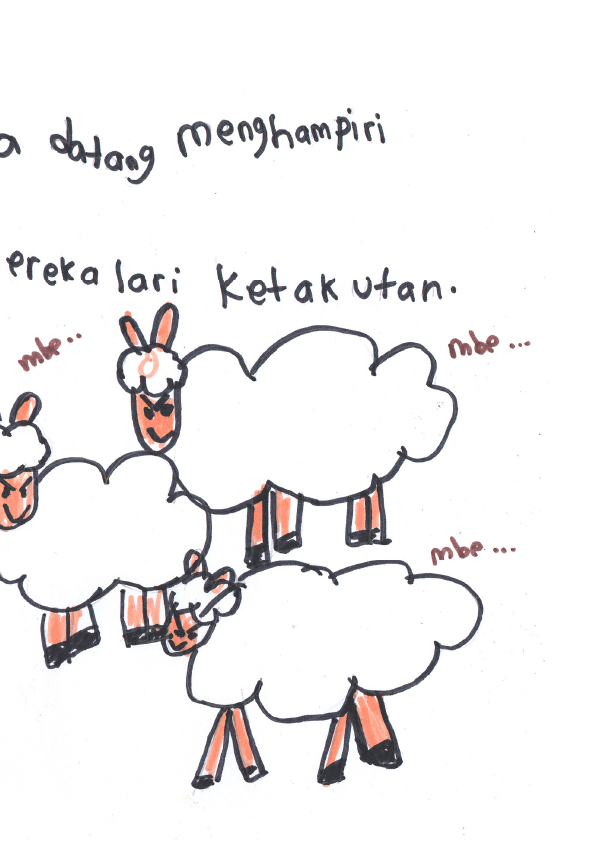 a datang menghampiri
ereka lari ketakutan.
mbe..
mbe...
mbe...